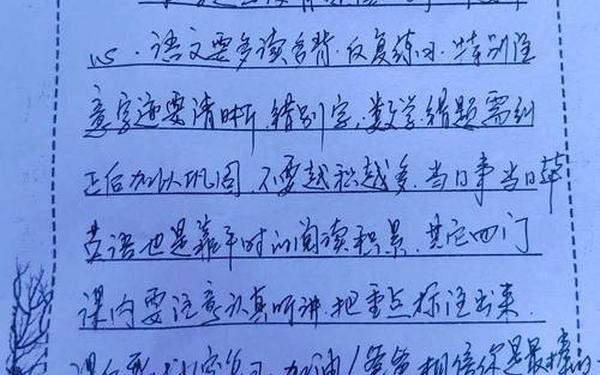 语文要多读多背.反复练习.特别注
意字迹要清晰.错别字,数学错题需纠
正后加以巩固,不要越积越多.当日事当日毕
英语也是靠平时的阅读积累.其它四门
课内要注意认真听讲.把重点标注出来.
复习.加油!爸爸相信你是最棒的